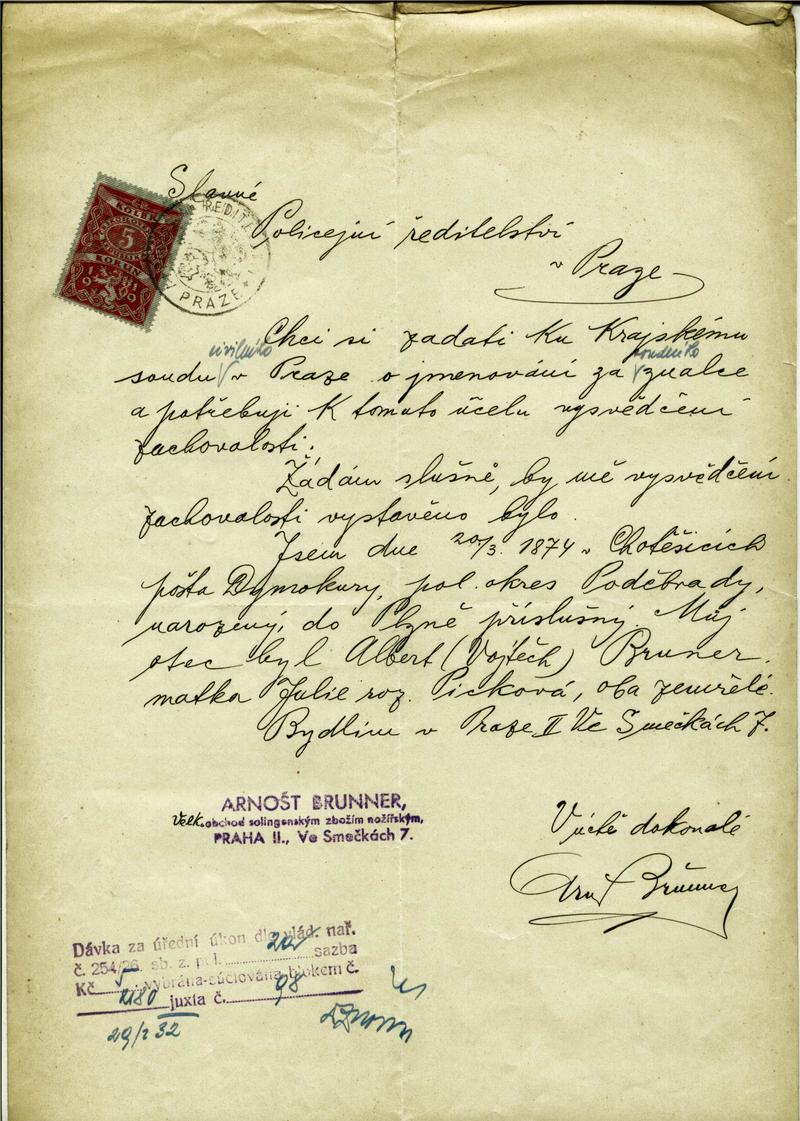 Slavné
Policejní ředitelství
v Praze
KOLEK
5
KOLKU
1931
ŘEDITEL
V PRAZE
Chci si zadati ku Krajskému
civilního soudního
soudu v Praze o jmenování za znalce
a potřebuji k tomuto účelu vysvědčení
zachovalosti.
Žádám slušně, by mě vysvědčení
zachovalosti vystaveno bylo.
Jsem dne 20/3. 1874 v Chotěšicích
pošta Dymokury, pol. okres Poděbrady,
narozený, do Plzně příslušný. Můj
otec byl Albert (Vojtěch) Bruner.
matka Julie roz. Picková, oba zemřelé.
Bydlím v Praze II Ve Smečkách 7.
ARNOŠT BRUNNER,
Velk. obchod solingenským zbožím nožířským,
PRAHA II., Ve Smečkách 7.
V úctě dokonalé
Arnšt Brunner
Dávka za úřední úkon dle vlád. nař.
č. 254/26. sb. z. p. I. sazba
Kč 5 vybrána-súčtována blokem č.
2180 juxta č. 98
29/I 32